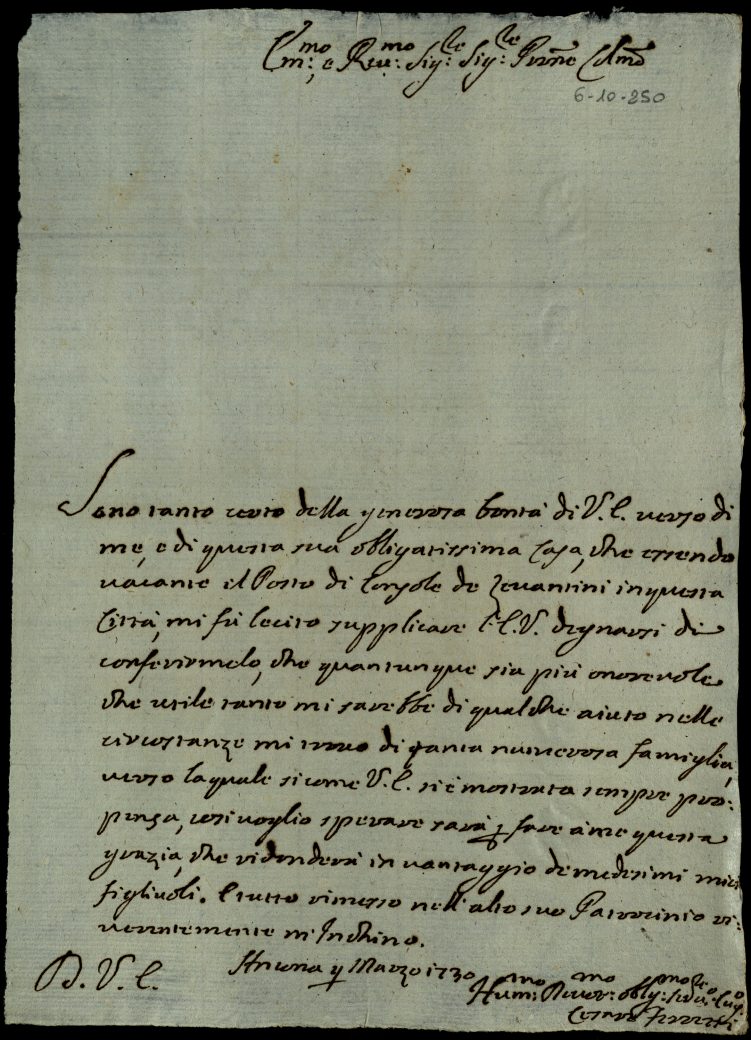 Em:mo, e Reu:mo Sig:re Sig:re Prōne Colmō
6-10-250
Sono tanto certo della generosa bontà di V.E. uerso di
me, e di questa sua obligatissima Casa, che essendo
uacante il Posto di Console de Leuantini in questa
Città, mi fù lecito supplicare l'E.V. degnarsi di
conferirmelo, che quantunque sia più onoreuole
che utile tanto mi sarebbe di qualche aiuto nelle
circostanze mi trouo di tanta numerosa famiglia,
uerso la quale sicome V.E. si è mostrata sempre pro:
pensa, così uoglio sperare sarà p fare à me questa
grazia, che ridonderà in uantaggio de medesimi miei
figliuoli. E tutto rimesso nell'alto suo Patrocinio ri:
uerentemente m'Inchino.
D. V. E.
Ancona p Marzo 1730
Hum:mo Deuot:mo oblig:mo
Cesare Ferretti